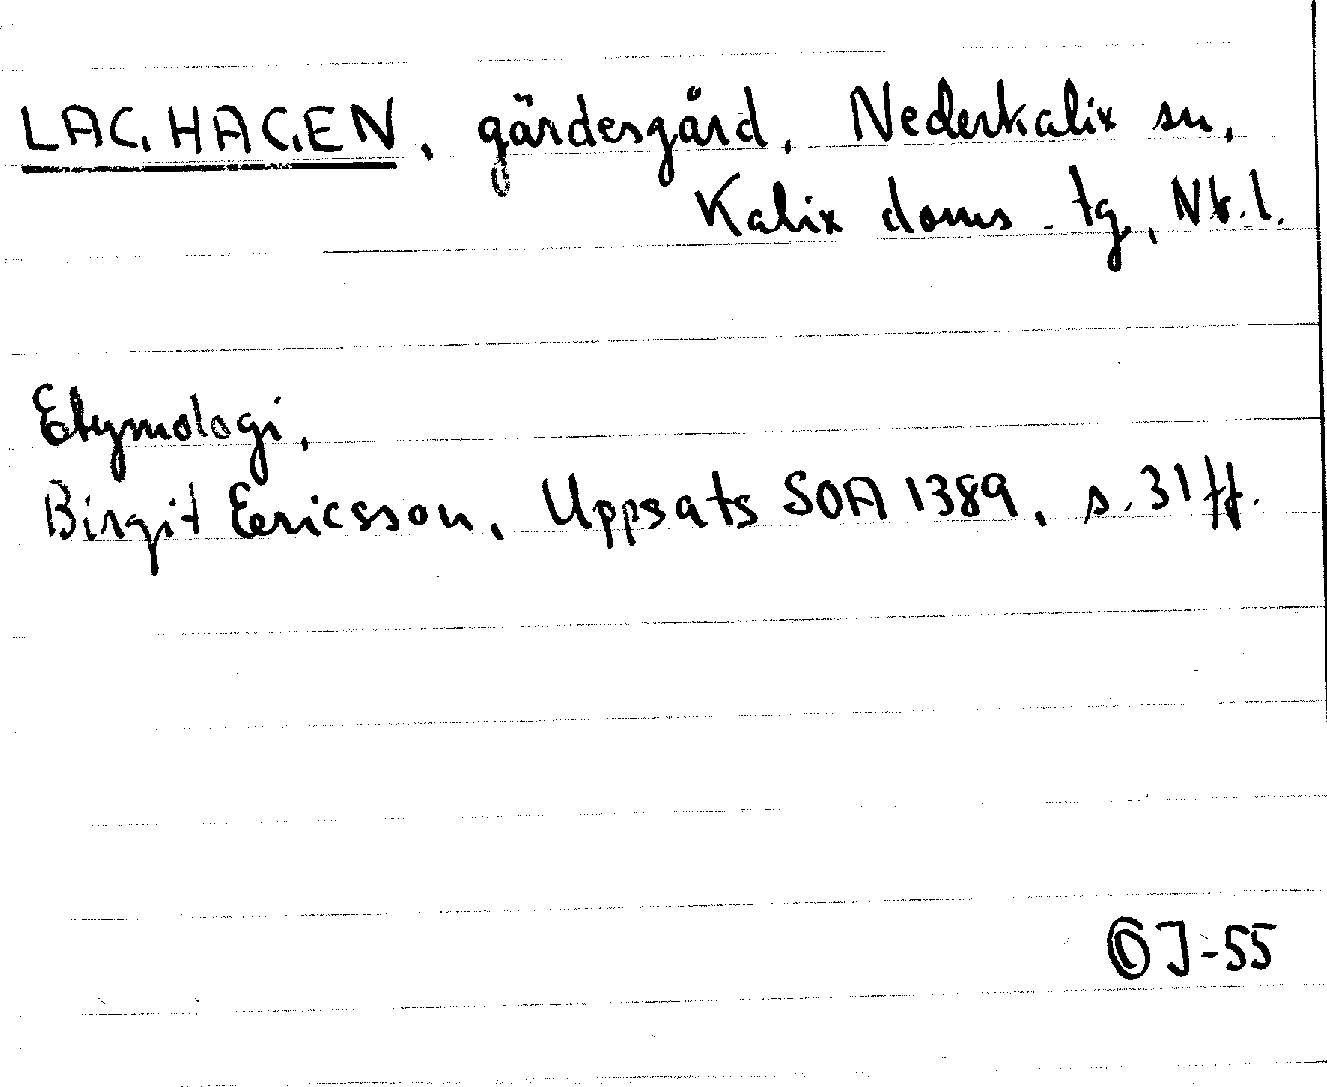 LAGHAGEN, gärdesgård, Nederkalix sn,
Kalix doms. tg, Nb. l.
Etymologi,
Birgit Eericsson, Uppsats SOA 1389, s. 31 ff.
©J-55